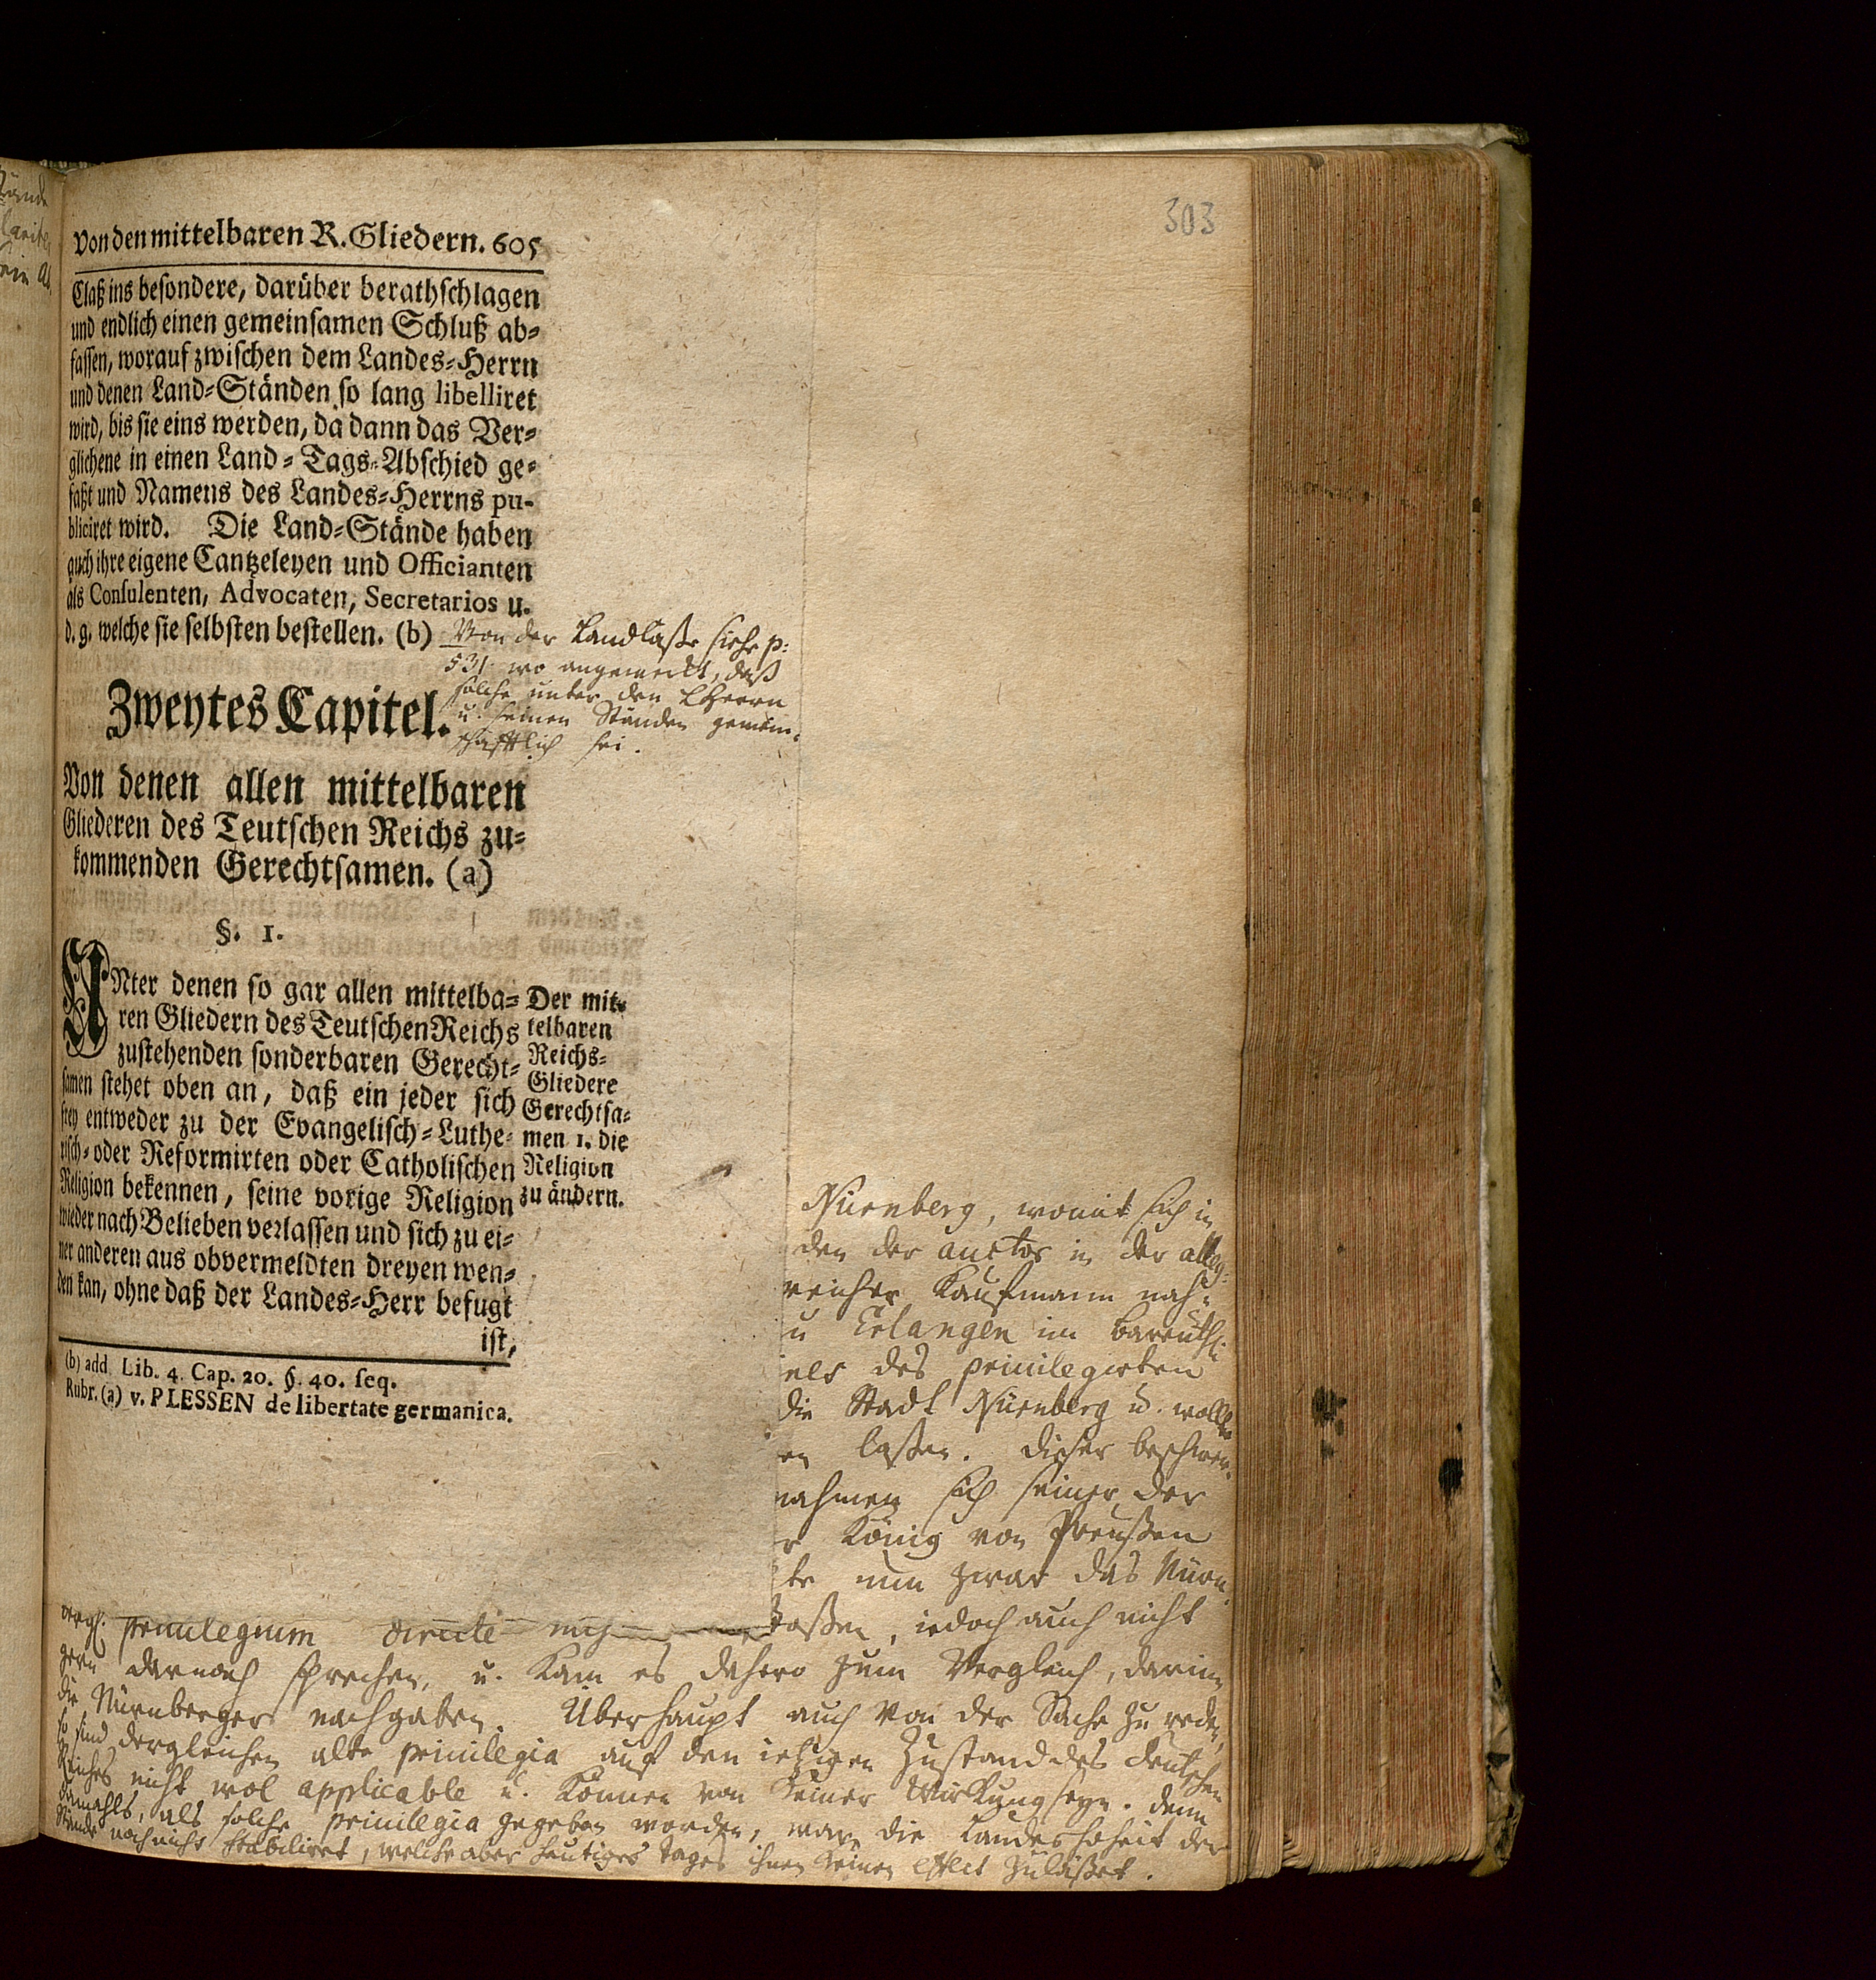 303
von den mittelbaren R. Gliedern. 605
Claß ins besondere, darüber berathschlagen
und endlich einen gemeinsamen Schluß ab-
fassen, worauf zwischen dem Landes-Herrn
und denen Land-Ständen so lang libelliret
wird, bis sie eins werden, da dann das Ver-
glichene in einen Land-Tags-Abschied ge-
faßt und Namens des Landes-Herrns pu-
bliciret wird. Die Land-Stände haben
auch ihre eigene Cantzeleyen und Officianten
als Consulenten, Advocaten, Secretarios u.
d. g. welche sie selbsten bestellen. (b)
Von der Landlaße siehe p:
531. wo angemerkt, daß
solche unter den LHerrn
u. seinen Ständen gemein-
schafftlich sei.
Zweytes Capitel.
Von denen allen mittelbaren
Gliederen des Teutschen Reichs zu-
kommenden Gerechtsamen. (a)
§. 1.
UNter denen so gar allen mittelba-
ren Gliedern des Teutschen Reichs
zustehenden sonderbaren Gerecht-
samen stehet oben an, daß ein jeder sich
frey entweder zu der Evangelisch-Luthe-
risch- oder Reformirten oder Catholischen
Religion bekennen, seine vorige Religion
wieder nach Belieben verlassen und sich zu ei-
ner anderen aus obvermeldten dreyen wen-
den kan, ohne daß der Landes-Herr befugt
ist,
Der mit-
telbaren
Reichs-
Gliedere
Gerechtsa-
men 1. die
Religion
zu ändern.
(b) add Lib. 4. Cap. 20. §. 40. seq.
Rubr. (a) v. PLESSEN de libertate germanica.
Nürnberg, womit sich in
den der auctor in der alleg:
reicher Kaufmann nah-
u Erlangen im Bareuth:
els des privilegirten
die Stadt Nürnberg u. wollte
en laßen. dieser beschwer-
nahmen sich seiner der
r König von Preußen
te nun zwar das Nürn-
bergl. privilegium directe
toßen, iedoch auch nicht
gern darnach sprechen, u. kam es dahero zum Vergleich, darin
die Nürnberger nachgaben. Überhaupt auch von der Sache zu reden,
so sind dergleichen alte privilegia auf den ietzigen Zustand des deutschen
Reiches nicht wol applicable u. können von keiner Wirkung seyn. denn
damahls, als solche privilegia gegeben worden, ware die Landeshoheit der
Stände noch nicht stabiliret, welche aber heutiges Tages ihnen keinen effect zuläßet.